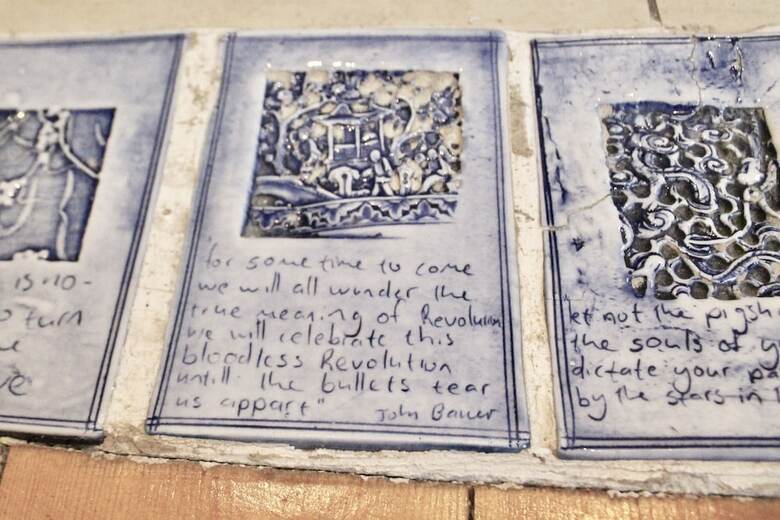 15·10-
turn
"for some time to come
we will all wonder the
true meaning of Revolution
we will celebrate this
bloodless Revolution
untill the bullets tear
us appart"
John Bauer
let not the pigsh
the souls of y
dictate your pa
by the stars in